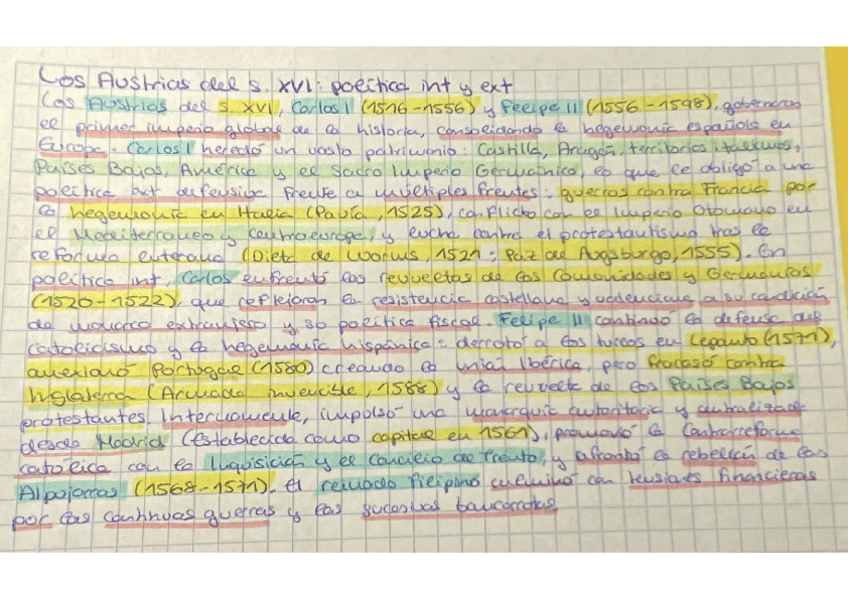 Los Austrias del s. XVI: política int y ext
Los Austrias del s. XVI, Carlos I (1516-1556) y Felipe II (1556-1598), gobernaron
el primer imperio global de la historia, consolidando la hegemonía española en
Europa. Carlos I heredó un vasto patrimonio: Castilla, Aragón, territorios italianos,
Países Bajos, América y el Sacro Imperio Germánico, lo que le obligó a una
política ext defensiva frente a múltiples frentes: guerras contra Francia por
la hegemonía en Italia (Pavía, 1525), conflicto con el Imperio Otomano en
el Mediterraneo y centroeuropa, y lucha contra el protestantismo tras la
reforma luterana (Dieta de Worms, 1521; Paz de Augsburgo, 1555). En
política int, Carlos enfrentó las revueltas de las Comunidades y Germanías
(1520-1522), que reflejaron la resistencia castellana y valenciana a su condición
de monarca extranjero y su política fiscal. Felipe II continuó la defensa del
catolicismo y la hegemonía hispánica: derrotó a los turcos en Lepanto (1571),
anexionó Portugal (1580) creando la unión Ibérica, pero fracasó contra
Inglaterra (Armada invencible, 1588) y la revuelta de los Países Bajos
protestantes Internamente, impulsó una monarquía autoritaria y centralizada
desde Madrid (establecida como capital en 1561), promovió la Contrarreforma
católica con la Inquisición y el Concilio de Trento, y afrontó la rebelión de las
Alpujarras (1568-1571). El reinado filipino culminó con tensiones financieras
por las continuas guerras y las sucesivas bancarrotas